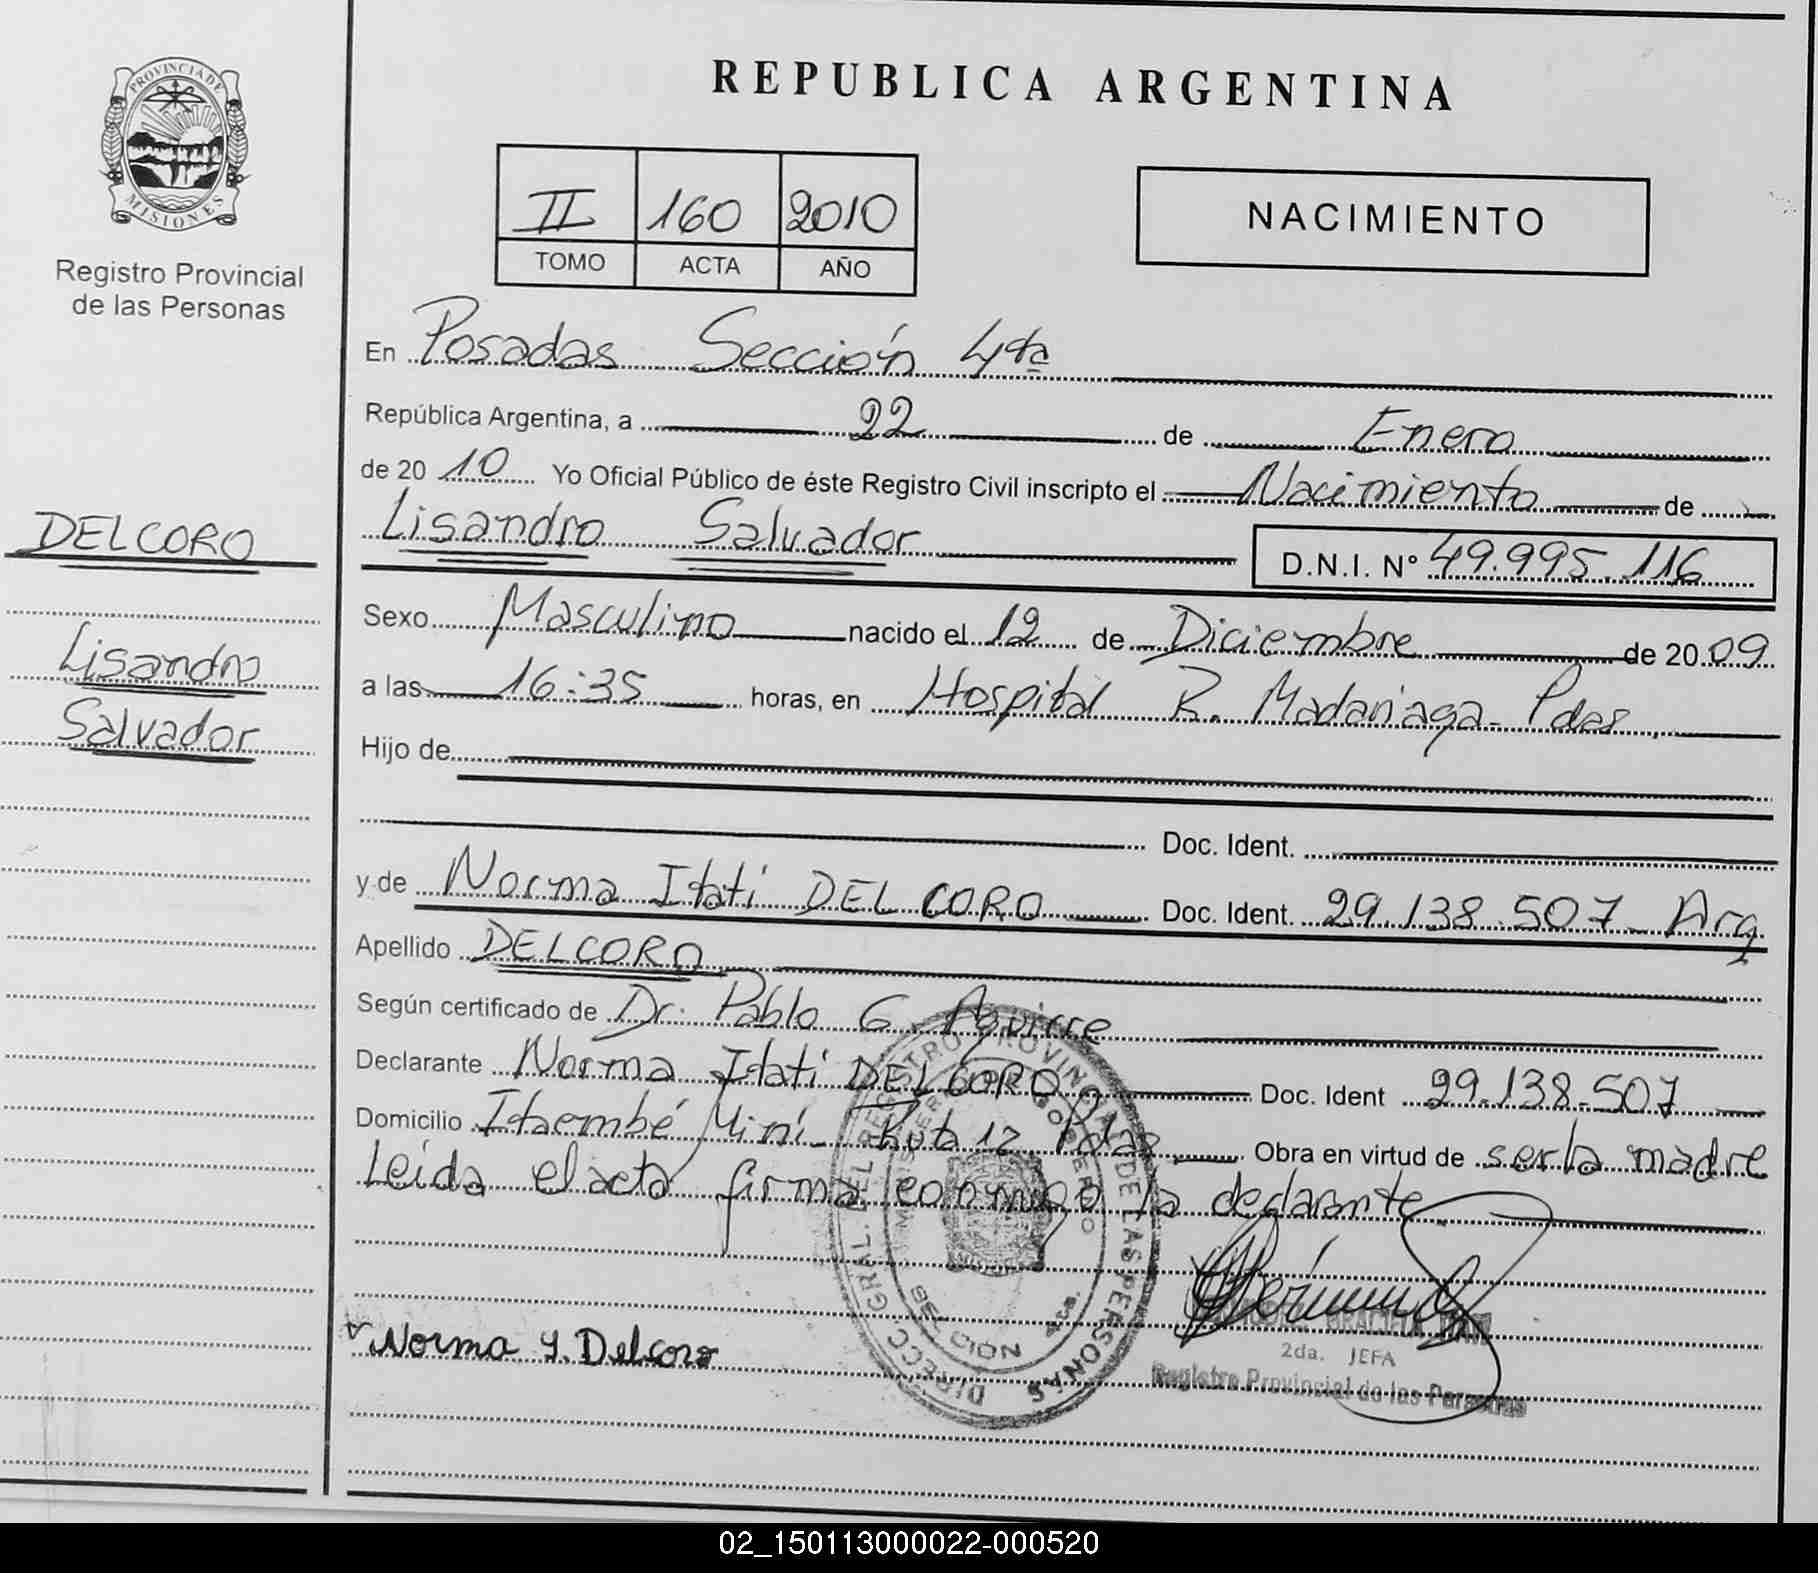 PROVINCIA DE
MISIONES
Registro Provincial
de las Personas
DELCORO
Lisandro
Salvador
REPUBLICA ARGENTINA
II 160 2010
TOMO ACTA AÑO
NACIMIENTO
En Posadas Sección 4ta
República Argentina, a 22 de Enero
de 20 10 Yo Oficial Público de éste Registro Civil inscripto el Nacimiento de
Lisandro Salvador D.N.I. Nº 49.995.116
Sexo Masculino nacido el 12 de Diciembre de 20 09
a las 16:35 horas, en Hospital R. Madariaga - Pdas
Hijo de
Doc. Ident.
y de Norma Itati DEL CORO Doc. Ident. 29.138.507 - Arg
Apellido DELCORO
Según certificado de Dr. Pablo G. Aguirre
Declarante Norma Itati DELCORO Doc. Ident 29.138.507
Domicilio Itaembé Miní - Ruta 12 Pdas Obra en virtud de ser la madre
Leida el acta firma conmigo la declarante
DIRECC. GRAL. DEL REGISTRO PROVINCIAL DE LAS PERSONAS
Norma Y. Delcoro
GRACIELA
2da. JEFA
Registro Provincial de las Personas
02_150113000022-000520